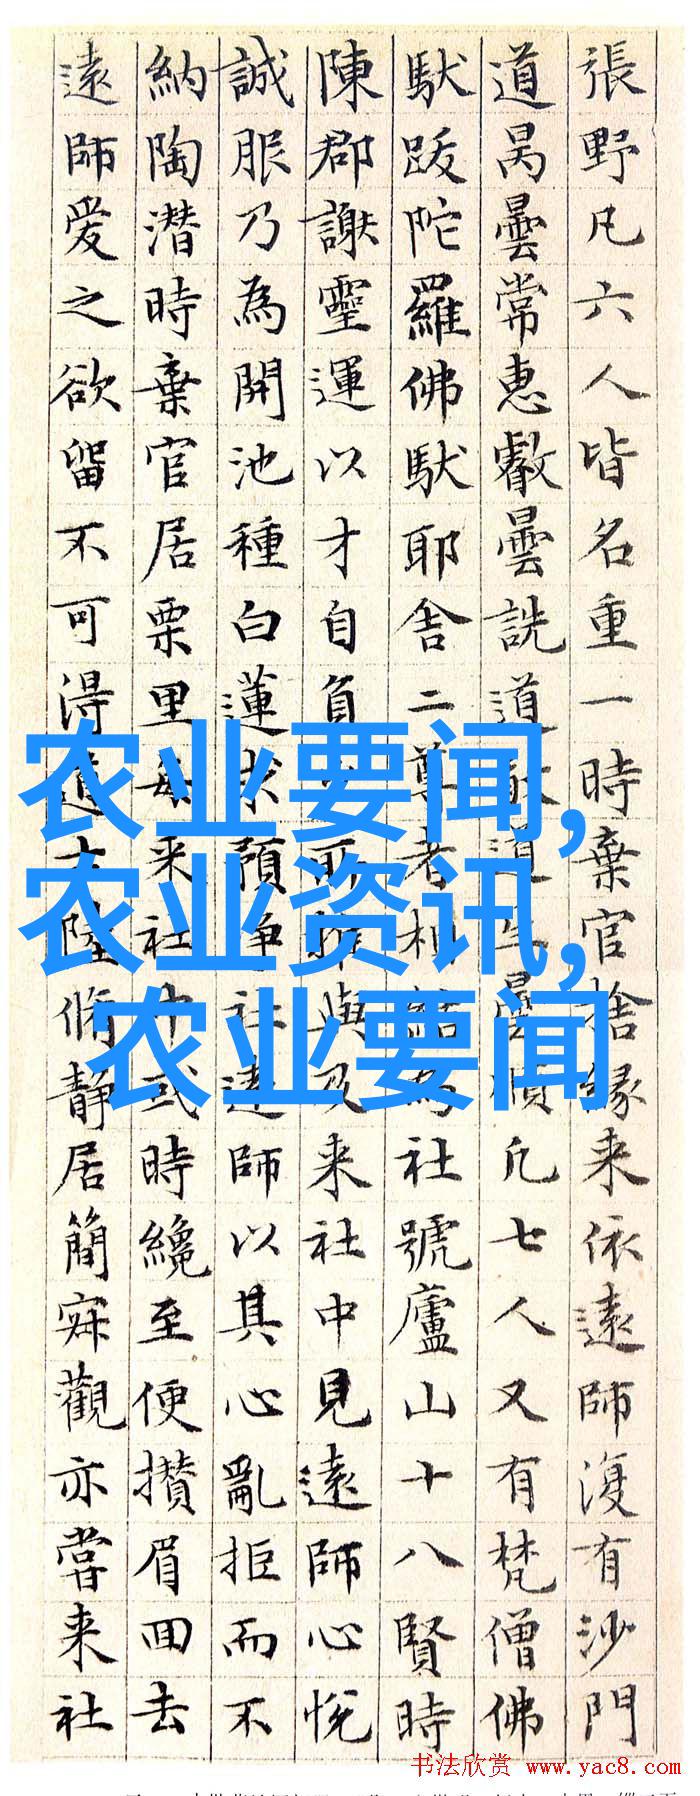 張野凡六人皆名重一時棄官捨緣来依遠師復有沙門
道昺曇常惠叡曇詵道敬道生曇順凡七人又有梵僧佛
馱跋陀羅佛馱耶舍二尊者相結為社號廬山十八賢時
陳郡謝靈運以才自負少所推與及来社中見遠師心悅
誠服乃為開池種白蓮求預浄社遠師以其心亂拒而不
納陶潜時棄官居栗里每来社中或時纔至便攢眉回去
遠師爱之欲留不可得道士陸脩静居簡寂觀亦嘗来社
农业要闻,
农业资讯,
农业要闻
书法欣赏 www.yac8.com